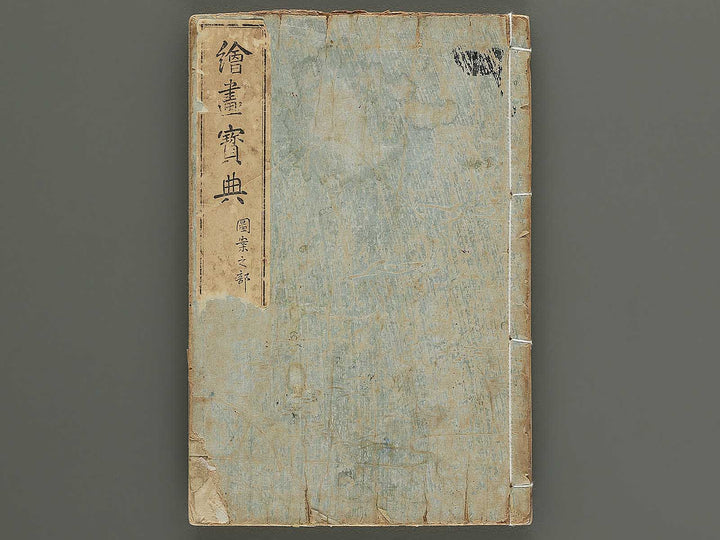 繪畫寳典
圖案之部